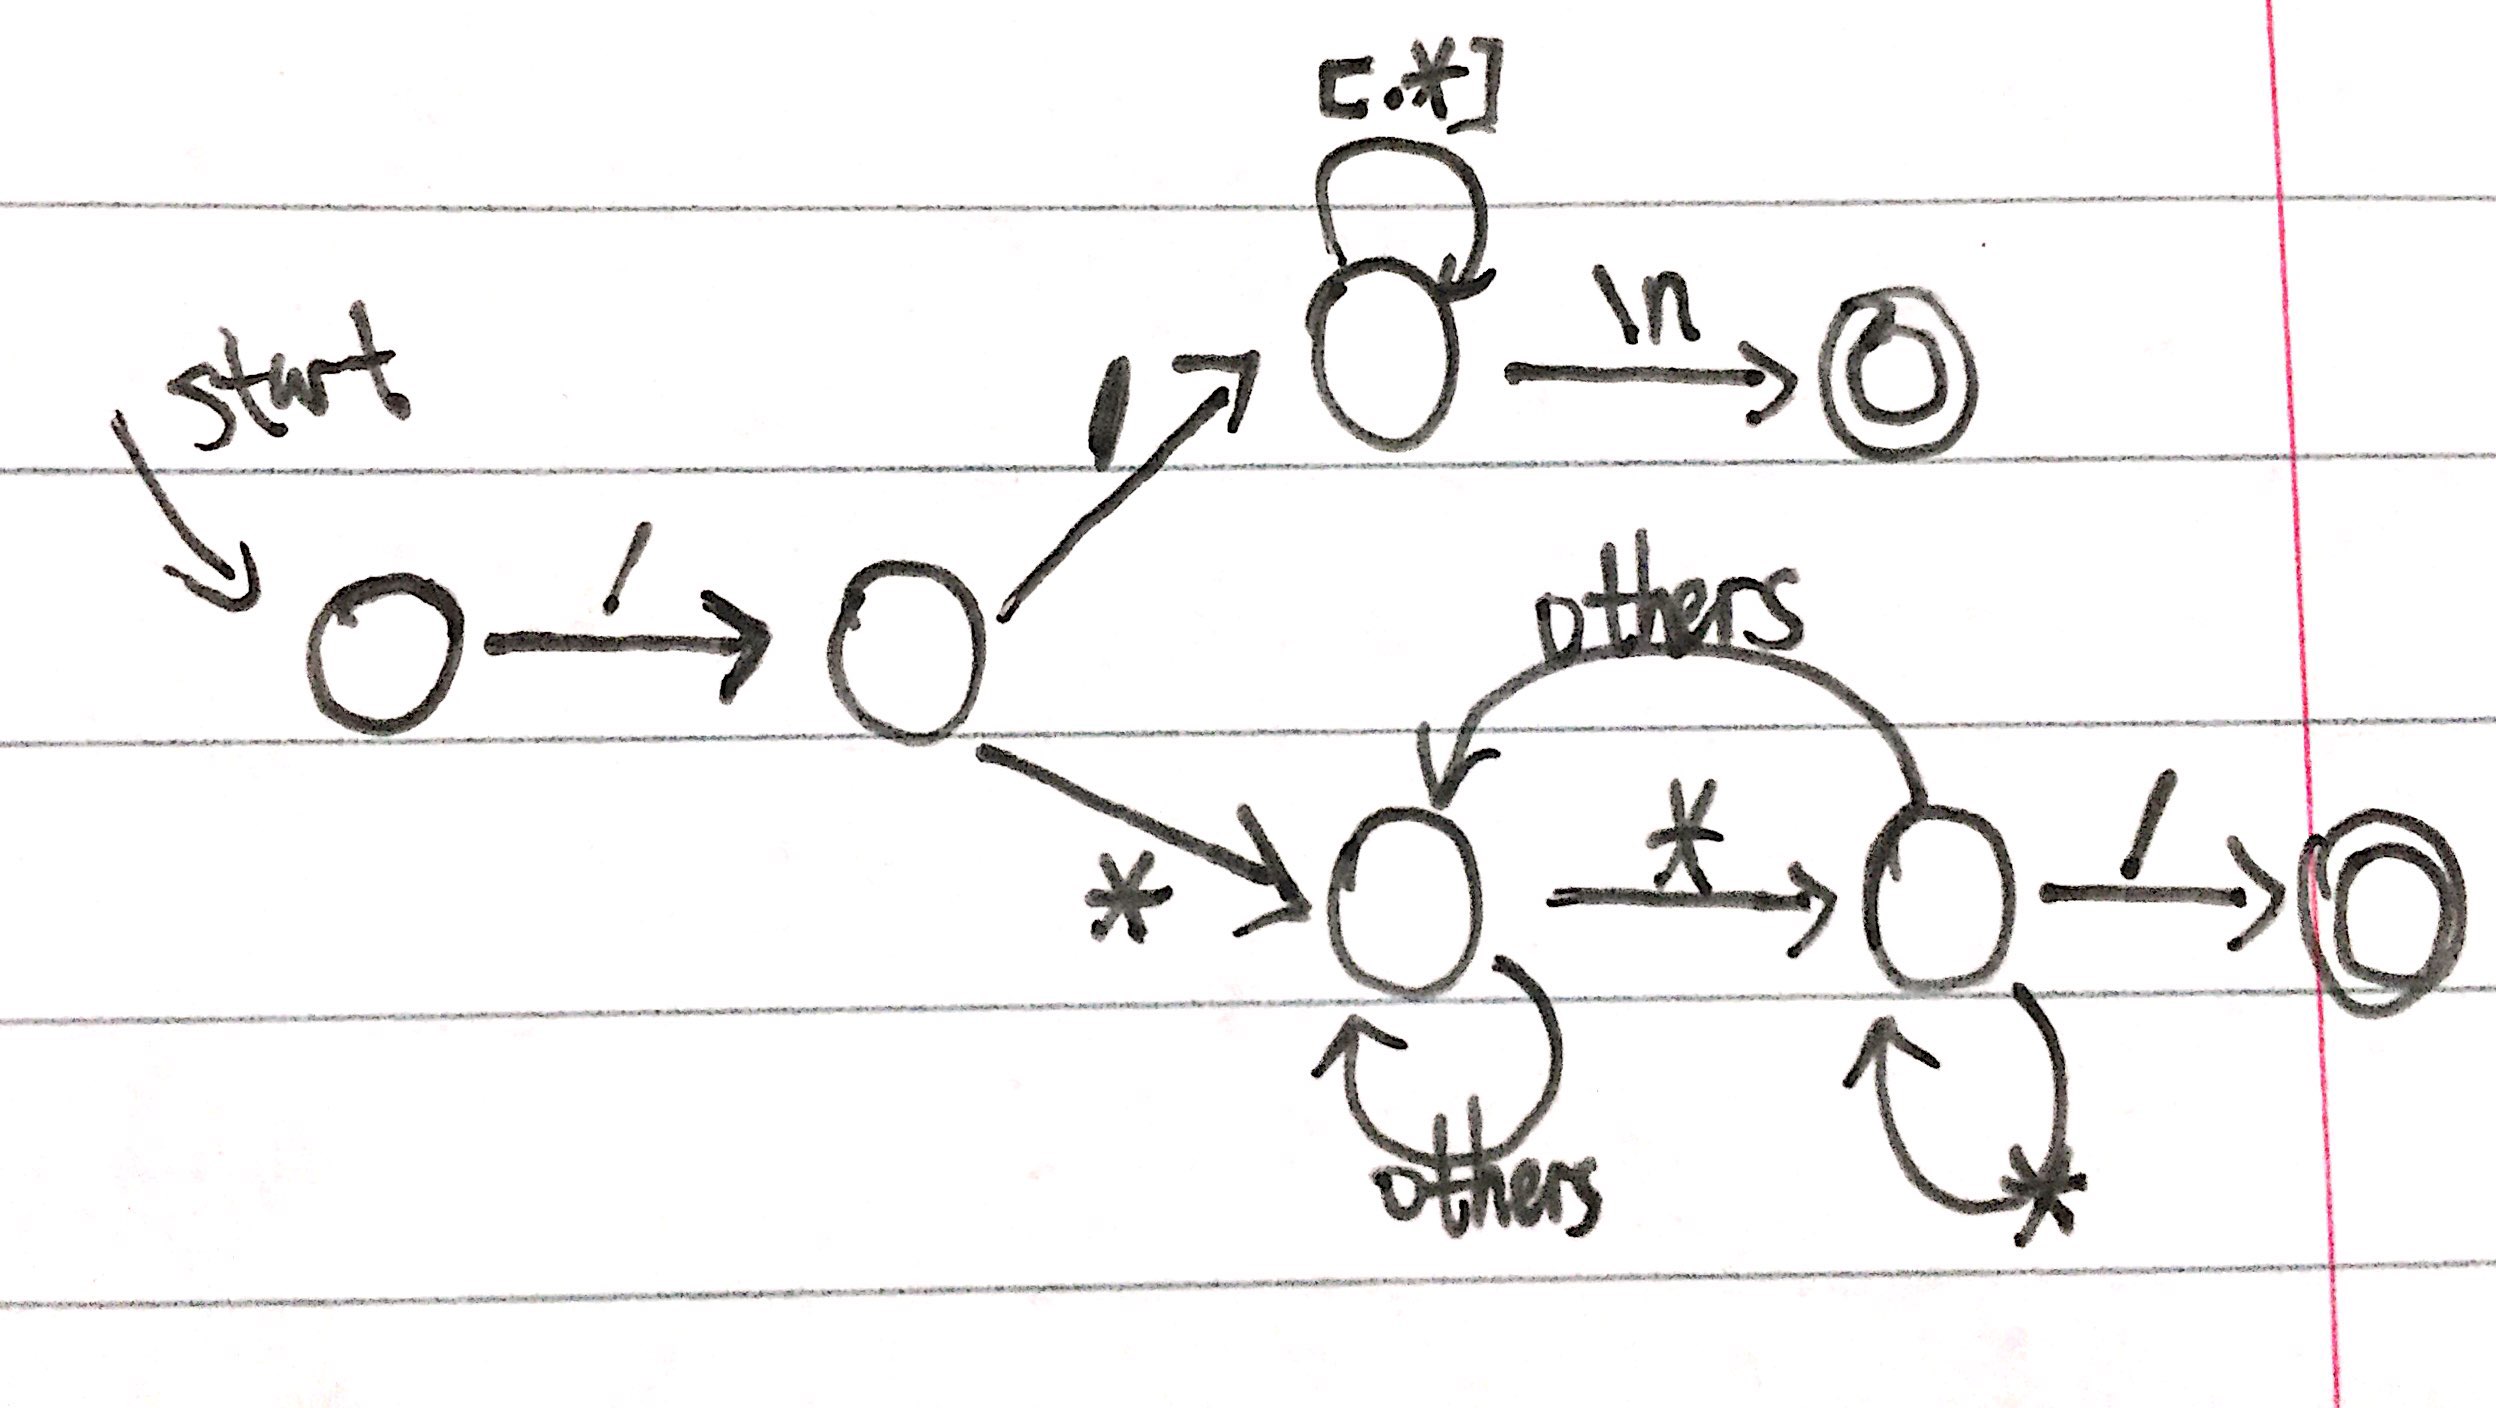 [.*]
start
\n
/
/
others
*
/
*
others
*